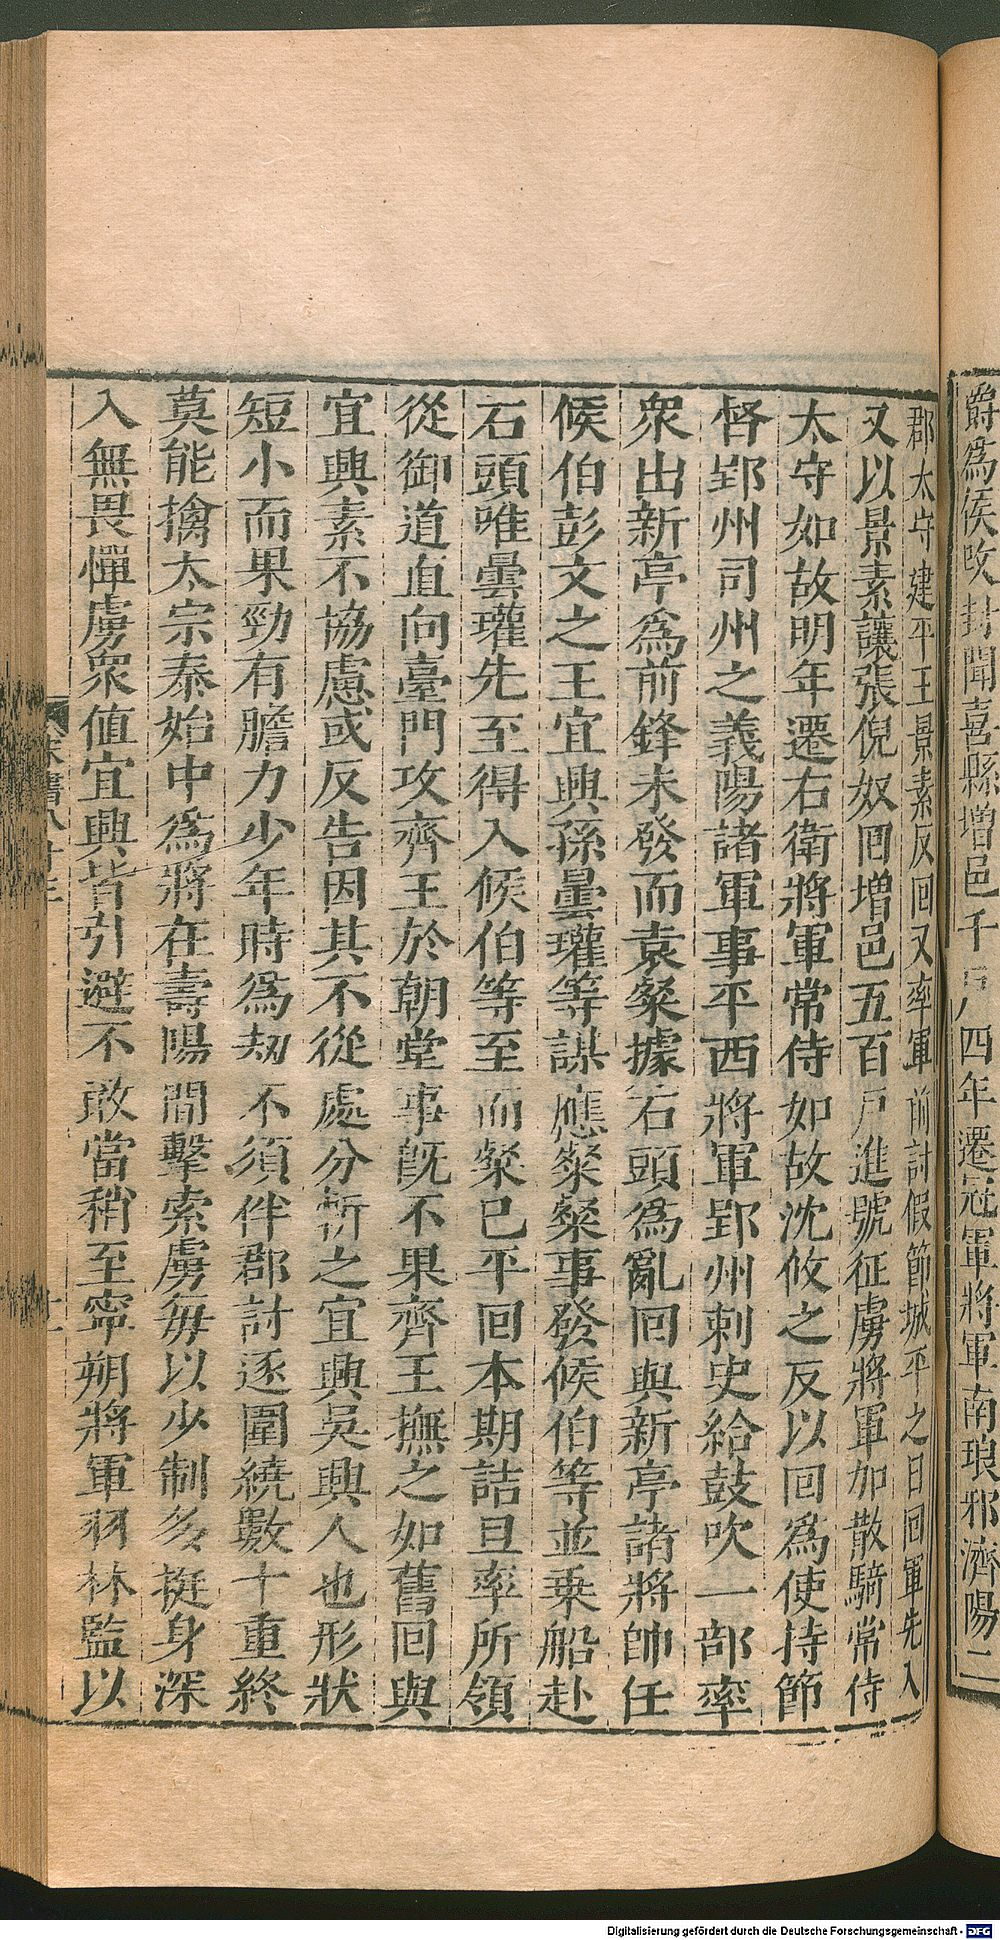 爵爲侯改封聞喜縣增邑千戶四年遷冠軍將軍南琅邪濟陽二
郡太守建平王景素反回又率軍前討假節城平之日回軍先入
又以景素讓張倪奴回增邑五百戶進號征虜將軍加散騎常侍
太守如故明年遷右衛將軍常侍如故沈攸之反以回爲使持節
督郢州司州之義陽諸軍事平西將軍郢州刺史給鼓吹一部率
衆出新亭爲前鋒未發而袁粲據石頭爲亂回與新亭諸將帥任
候伯彭文之王宜興孫曇瓘等謀應粲粲事發候伯等並乗船赴
石頭唯曇瓘先至得入候伯等至而粲已平回本期詰旦率所領
從御道直向臺門攻齊王於朝堂事旣不果齊王撫之如舊回與
宜興素不協慮或反告因其不從處分斬之宜興吳興人也形狀
短小而果勁有膽力少年時爲劫不須伴郡討逐圍繞數十重終
莫能擒太宗泰始中爲將在壽陽間擊索虜每以少制多挺身深
入無畏憚虜衆値宜興皆引避不敢當稍至寧朔將軍羽林監以
Digitalisierung gefördert durch die Deutsche Forschungsgemeinschaft - DFG